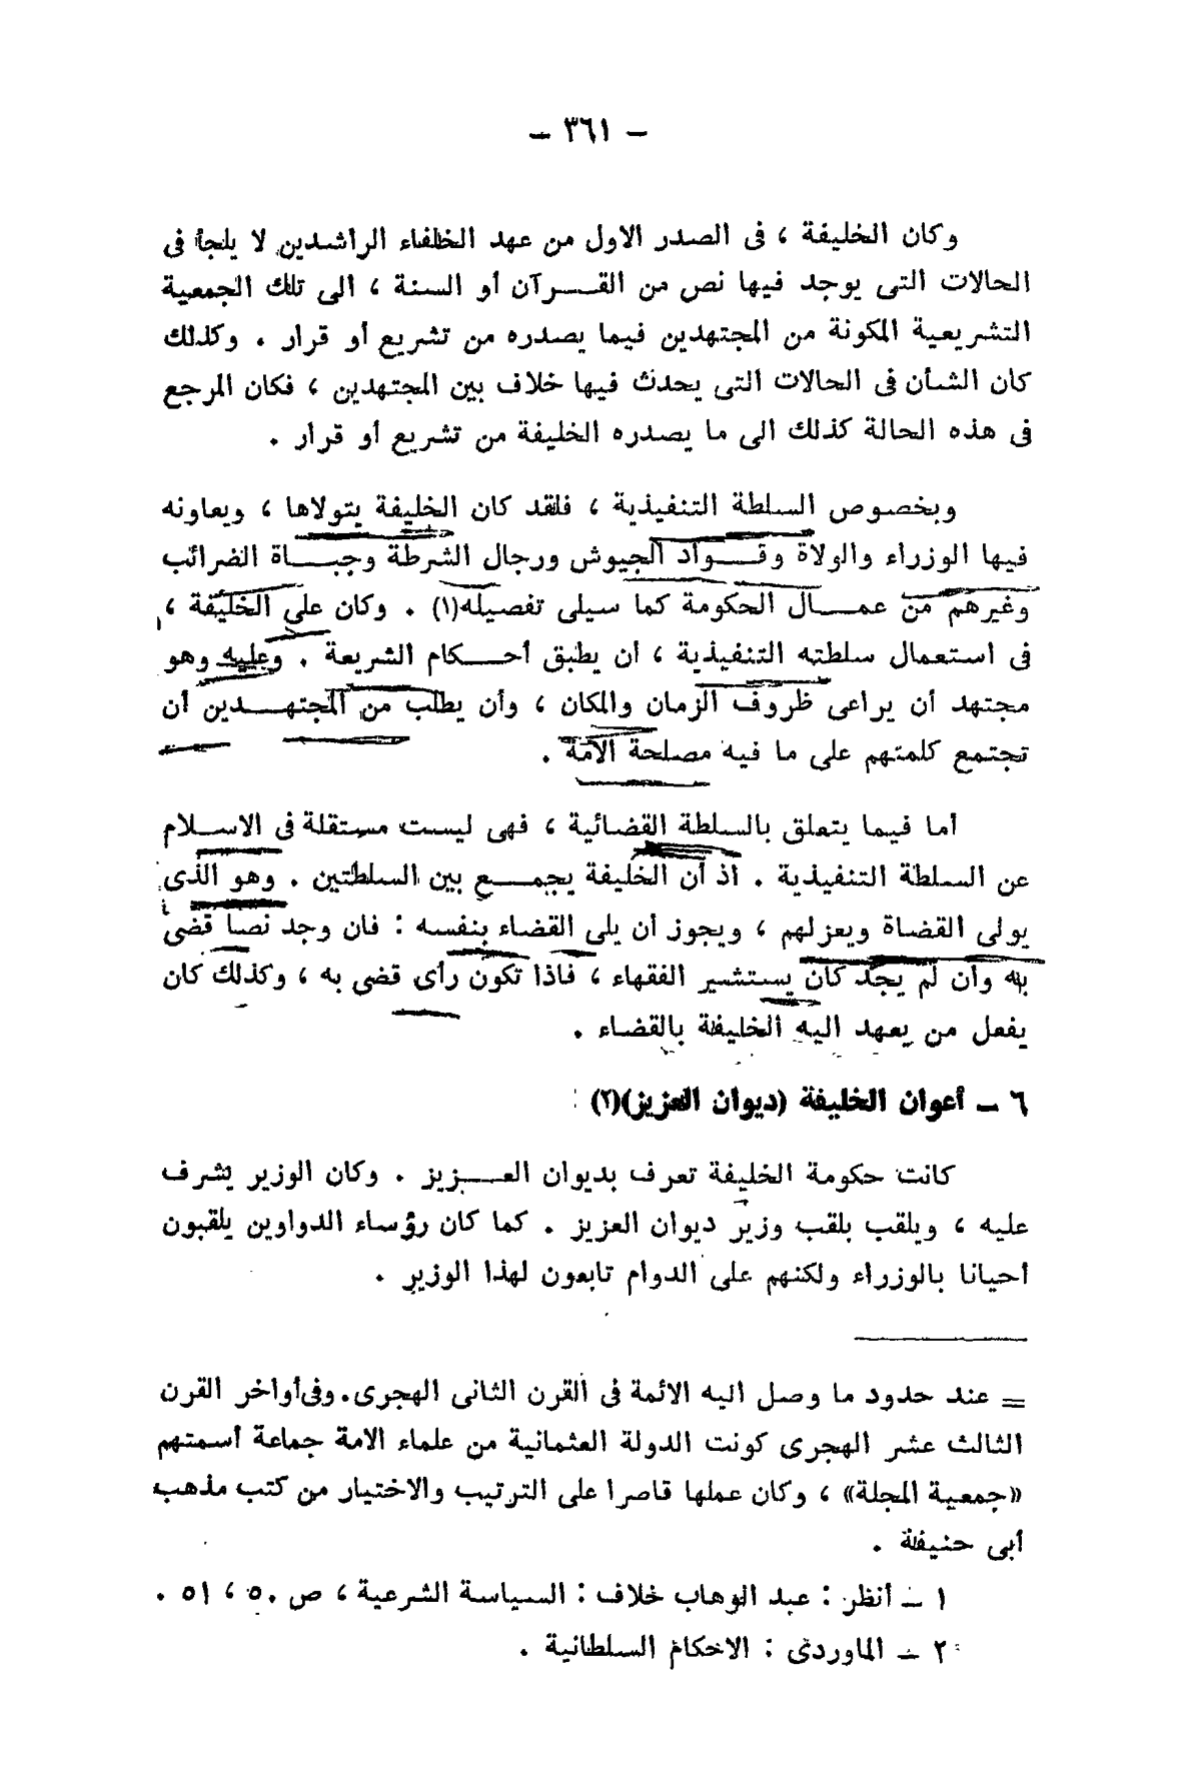 – ٣٦١ –
وكان الخليفة ، فى الصدر الاول من عهد الخلفاء الراشدين لا يلجأ فى
الحالات التى يوجد فيها نص من القـــرآن أو السنة ، الى تلك الجمعية
التشريعية المكونة من المجتهدين فيما يصدره من تشريع أو قرار . وكذلك
كان الشأن فى الحالات التى يحدث فيها خلاف بين المجتهدين ، فكان المرجع
فى هذه الحالة كذلك الى ما يصدره الخليفة من تشريع أو قرار .
وبخصوص السلطة التنفيذية ، فلقد كان الخليفة يتولاها ، ويعاونه
فيها الوزراء والولاة وقـــواد الجيوش ورجال الشرطة وجبـــاة الضرائب
وغيرهم من عمـــال الحكومة كما سيلى تفصيله(١) . وكان على الخليفة ،
فى استعمال سلطته التنفيذية ، أن يطبق أحـــكام الشريعة . وعليه وهو
مجتهد أن يراعى ظروف الزمان والمكان ، وأن يطلب من المجتهـــدين أن
تجتمع كلمتهم على ما فيه مصلحة الأمة .
أما فيما يتعلق بالسلطة القضائية ، فهى ليست مستقلة فى الاســلام
عن السلطة التنفيذية . اذ أن الخليفة يجمـــع بين السلطتين . وهو الذى
يولى القضاة ويعزلهم ، ويجوز أن يلى القضاء بنفسه : فان وجد نصا قضى
به وان لم يجد كان يستشير الفقهاء ، فاذا تكون رأى قضى به ، وكذلك كان
يفعل من يعهد اليه الخليفة بالقضاء .
٦ – أعوان الخليفة (ديوان العزيز)(٢) :
كانت حكومة الخليفة تعرف بديوان العـــزيز . وكان الوزير يشرف
عليه ، ويلقب بلقب وزير ديوان العزيز . كما كان رؤساء الدواوين يلقبون
أحيانا بالوزراء ولكنهم على الدوام تابعون لهذا الوزير .
= عند حدود ما وصل اليه الائمة فى القرن الثانى الهجرى. وفى أواخر القرن
الثالث عشر الهجرى كونت الدولة العثمانية من علماء الامة جماعة أسمتهم
«جمعية المجلة» ، وكان عملها قاصرا على الترتيب والاختيار من كتب مذهب
أبى حنيفة .
١ – أنظر : عبد الوهاب خلاف : السياسة الشرعية ، ص ٥٠ ، ٥١ .
٢ – الماوردى : الاحكام السلطانية .